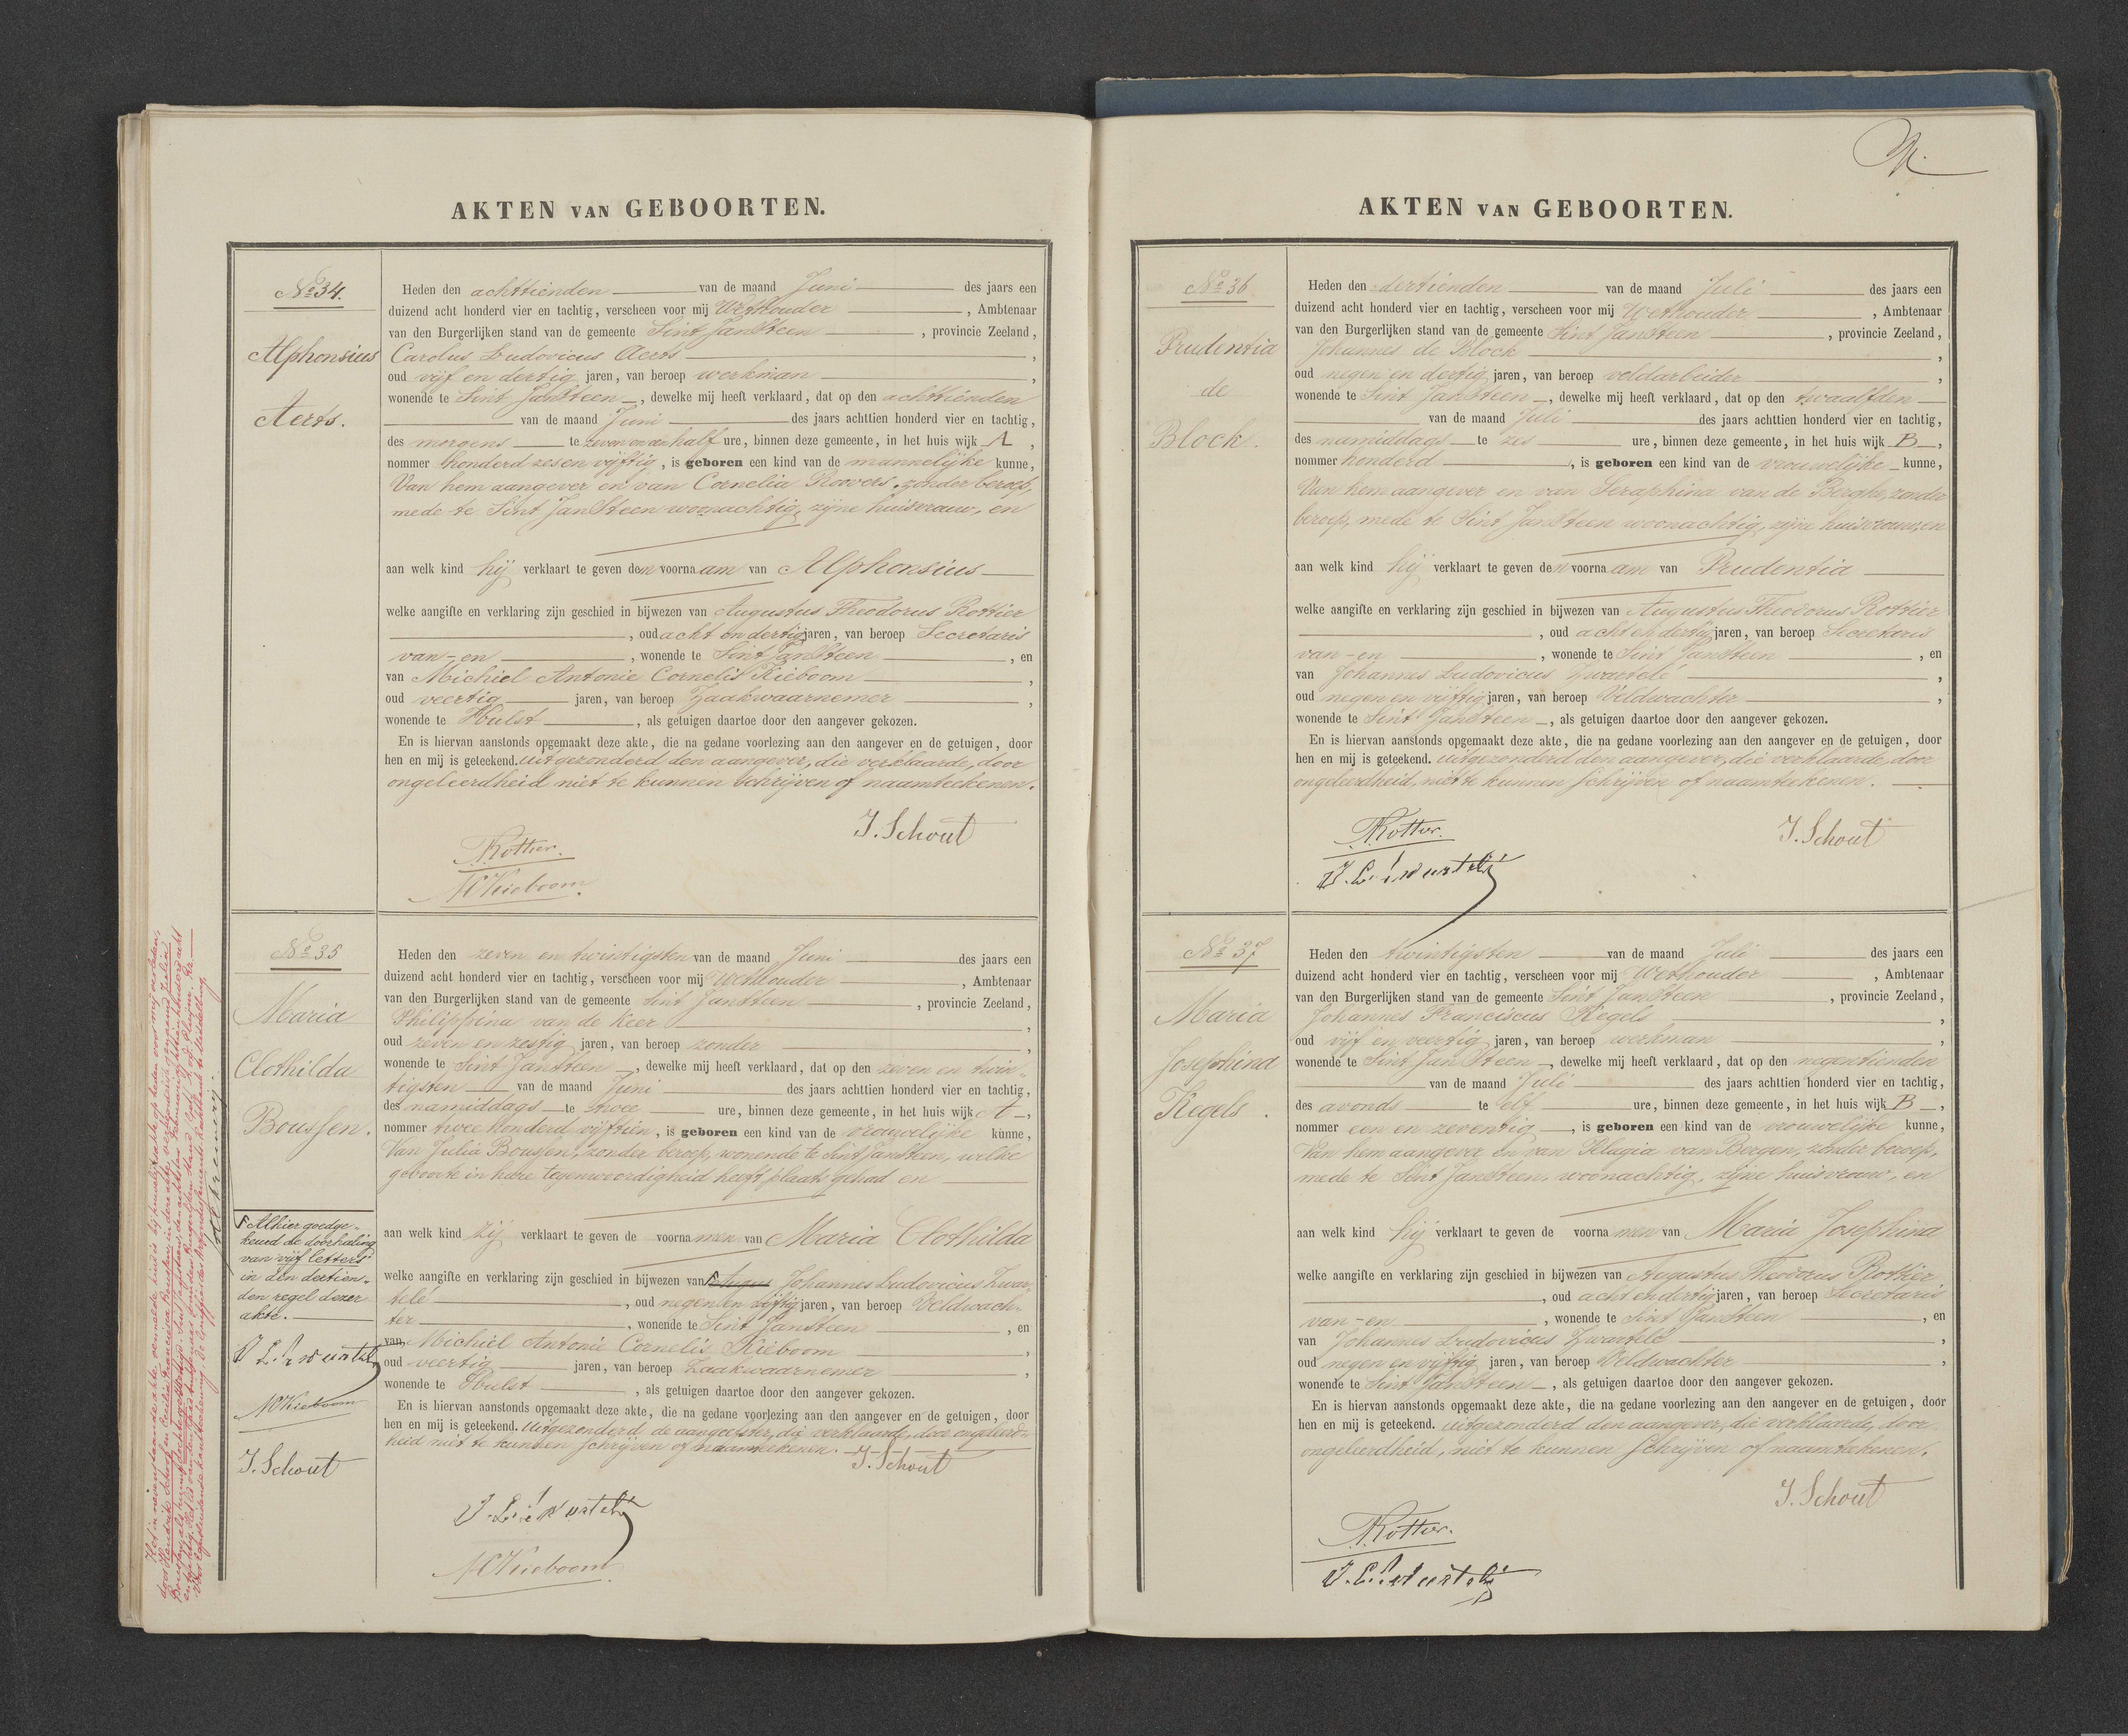 AKTEN VAN GEBOORTEN.
No 34.
Alphonsius
Aerts.
Heden den achttienden van de maand Juni des jaars een
duizend acht honderd vier en tachtig, verscheen voor mij Wethouder , Ambtenaar
van den Burgerlijken stand van de gemeente Sint JanSteen , provincie Zeeland,
Carolus Ludovicus Aerts ,
oud vijf en dertig jaren, van beroep werkman ,
wonende te Sint JanSteen , dewelke mij heeft verklaard, dat op den achttienden
van de maand Juni des jaars achttien honderd vier en tachtig,
des morgens te zeven en een half ure, binnen deze gemeente, in het huis wijk A ,
nommer honderd zes en vijftig, is geboren een kind van de mannelijke kunne,
Van hem aangever en van Cornelia Roovers, zonder beroep,
mede te Sint JanSteen woonachtig, zijne huisvrouw, en
aan welk kind hij verklaart te geven den voornaam van Alphonsius
welke aangifte en verklaring zijn geschied in bijwezen van Augustus Theodorus Rottier
, oud acht en dertig jaren, van beroep Secretaris
van - en , wonende te Sint JanSteen , en
van Michiel Antonie Cornelis Kieboom ,
oud veertig jaren, van beroep Zaakwaarnemer ,
wonende te Hulst , als getuigen daartoe door den aangever gekozen.
En is hiervan aanstonds opgemaakt deze akte, die na gedane voorlezing aan den aangever en de getuigen, door
hen en mij is geteekend. Uitgezonderd den aangever, die verklaarde, door
ongeleerdheid niet te kunnen schrijven of naamteekenen.
J. Schout
Rottier.
MKieboom.
No 35
Maria
Clothilda
Boussen.
Heden den zeven en twintigsten van de maand Juni des jaars een
duizend acht honderd vier en tachtig, verscheen voor mij Wethouder , Ambtenaar
van den Burgerlijken stand van de gemeente Sint JanSteen , provincie Zeeland,
Philippina van de Keer ,
oud zeven en zestig jaren, van beroep zonder ,
wonende te Sint JanSteen , dewelke mij heeft verklaard, dat op den zeven en twin-
tigsten van de maand Juni des jaars achttien honderd vier en tachtig,
des namiddags te twee ure, binnen deze gemeente, in het huis wijk A ,
nommer twee honderd vijftien, is geboren een kind van de vrouwelijke kunne,
Van Julia Boussen, zonder beroep, wonende te Sint JanSteen, welke
geboorte in hare tegenwoordigheid heeft plaats gehad en
aan welk kind zij verklaart te geven de voornamen van Maria Clothilda
welke aangifte en verklaring zijn geschied in bijwezen van Augus Johannes Ludovicus Zwar-
telé , oud negen en vijftig jaren, van beroep Veldwach-
ter , wonende te Sint JanSteen , en
van Michiel Antonie Cornelis Kieboom ,
oud veertig jaren, van beroep Zaakwaarnemer ,
wonende te Hulst , als getuigen daartoe door den aangever gekozen.
En is hiervan aanstonds opgemaakt deze akte, die na gedane voorlezing aan den aangever en de getuigen, door
hen en mij is geteekend. Uitgezonderd de aangeefster, die verklaarde, door ongeleerd-
heid niet te kunnen schrijven of naamteekenen.
J. Schout
MKieboom
Alhier goedge-
keurd de doorhaling
van vijf letters
in den dertien-
den regel dezer
akte.
MKieboom
J. Schout
AKTEN VAN GEBOORTEN.
No 36
Prudentia
de
Block.
Heden den dertienden van de maand Juli des jaars een
duizend acht honderd vier en tachtig, verscheen voor mij Wethouder , Ambtenaar
van den Burgerlijken stand van de gemeente Sint JanSteen , provincie Zeeland,
Johannes de Block ,
oud negen en dertig jaren, van beroep veldarbeider ,
wonende te Sint JanSteen , dewelke mij heeft verklaard, dat op den twaalfden
van de maand Juli des jaars achttien honderd vier en tachtig,
des namiddags te zes ure, binnen deze gemeente, in het huis wijk B ,
nommer honderd , is geboren een kind van de vrouwelijke kunne,
Van hem aangever en van Seraphina van de Berghe, zonder
beroep, mede te Sint JanSteen woonachtig, zijne huisvrouw, en
aan welk kind hij verklaart te geven den voornaam van Prudentia
welke aangifte en verklaring zijn geschied in bijwezen van Augustus Theodorus Rottier
, oud acht en dertig jaren, van beroep Secretaris
van - en , wonende te Sint JanSteen , en
van Johannes Ludovicus Zwartelé ,
oud negen en vijftig jaren, van beroep Veldwachter ,
wonende te Sint JanSteen , als getuigen daartoe door den aangever gekozen.
En is hiervan aanstonds opgemaakt deze akte, die na gedane voorlezing aan den aangever en de getuigen, door
hen en mij is geteekend. Uitgezonderd den aangever, die verklaarde, door
ongeleerdheid, niet te kunnen schrijven of naamteekenen.
Rottier.
J. Schout
No 37
Maria
Josephina
Kegels.
Heden den twintigsten van de maand Juli des jaars een
duizend acht honderd vier en tachtig, verscheen voor mij Wethouder , Ambtenaar
van den Burgerlijken stand van de gemeente Sint JanSteen , provincie Zeeland,
Johannes Franciscus Kegels ,
oud vijf en veertig jaren, van beroep werkman ,
wonende te Sint JanSteen , dewelke mij heeft verklaard, dat op den negentienden
van de maand Juli des jaars achttien honderd vier en tachtig,
des avonds te elf ure, binnen deze gemeente, in het huis wijk B ,
nommer een en zeventig , is geboren een kind van de vrouwelijke kunne,
Van hem aangever en van Pelagia van Bergen, zonder beroep,
mede te Sint JanSteen, woonachtig, zijne huisvrouw, en
aan welk kind hij verklaart te geven de voornamen van Maria Josephina
welke aangifte en verklaring zijn geschied in bijwezen van Augustus Theodorus Rottier
, oud acht en dertig jaren, van beroep Secretaris
van - en , wonende te Sint JanSteen , en
van Johannes Ludovicus Zwartelé ,
oud negen en vijftig jaren, van beroep Veldwachter ,
wonende te Sint JanSteen , als getuigen daartoe door den aangever gekozen.
En is hiervan aanstonds opgemaakt deze akte, die na gedane voorlezing aan den aangever en de getuigen, door
hen en mij is geteekend. Uitgezonderd den aangever, die verklaarde, door
ongeleerdheid, niet te kunnen schrijven of naamteekenen.
J. Schout
Rottier.